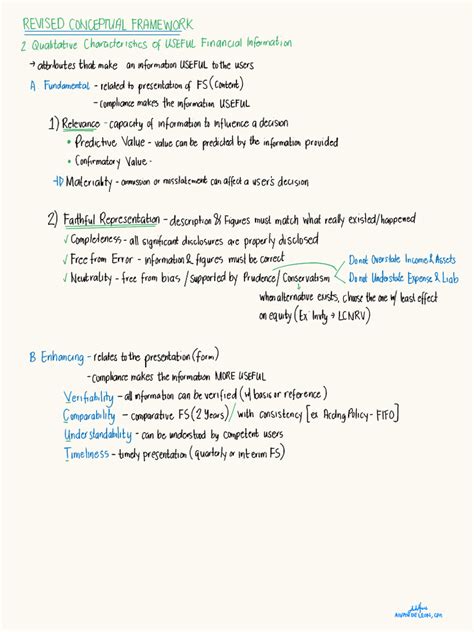 REVISED CONCEPTUAL FRAMEWORK
2 Qualitative Characteristics of USEFUL Financial Information
→ attributes that make an information USEFUL to the users
A Fundamental - related to presentation of FS (content)
- compliance makes the information USEFUL
1) Relevance - capacity of information to influence a decision
• Predictive Value - value can be predicted by the information provided
• Confirmatory Value -
Materiality - ommission or misstatement can affect a user's decision
2) Faithful Representation - description & figures must match what really existed/happened
✓ Completeness - all significant disclosures are properly disclosed
✓ Free from Error - information & figures must be correct
Do not Overstate Income & Assets
✓ Neutrality - free from bias / supported by Prudence/Conservatism
Do not Understate Expense & Liab
when alternative exists, choose the one w/ least effect
on equity (Ex: Invty → LCNRV)
B Enhancing - relates to the presentation (form)
- compliance makes the information MORE USEFUL
Verifiability - all information can be verified (w/ basis or reference)
Comparability - comparative FS (2 Years) / with consistency [ex Acctng Policy - FIFO]
Understandability - can be understood by competent users
Timeliness - timely presentation (quarterly or interim FS)